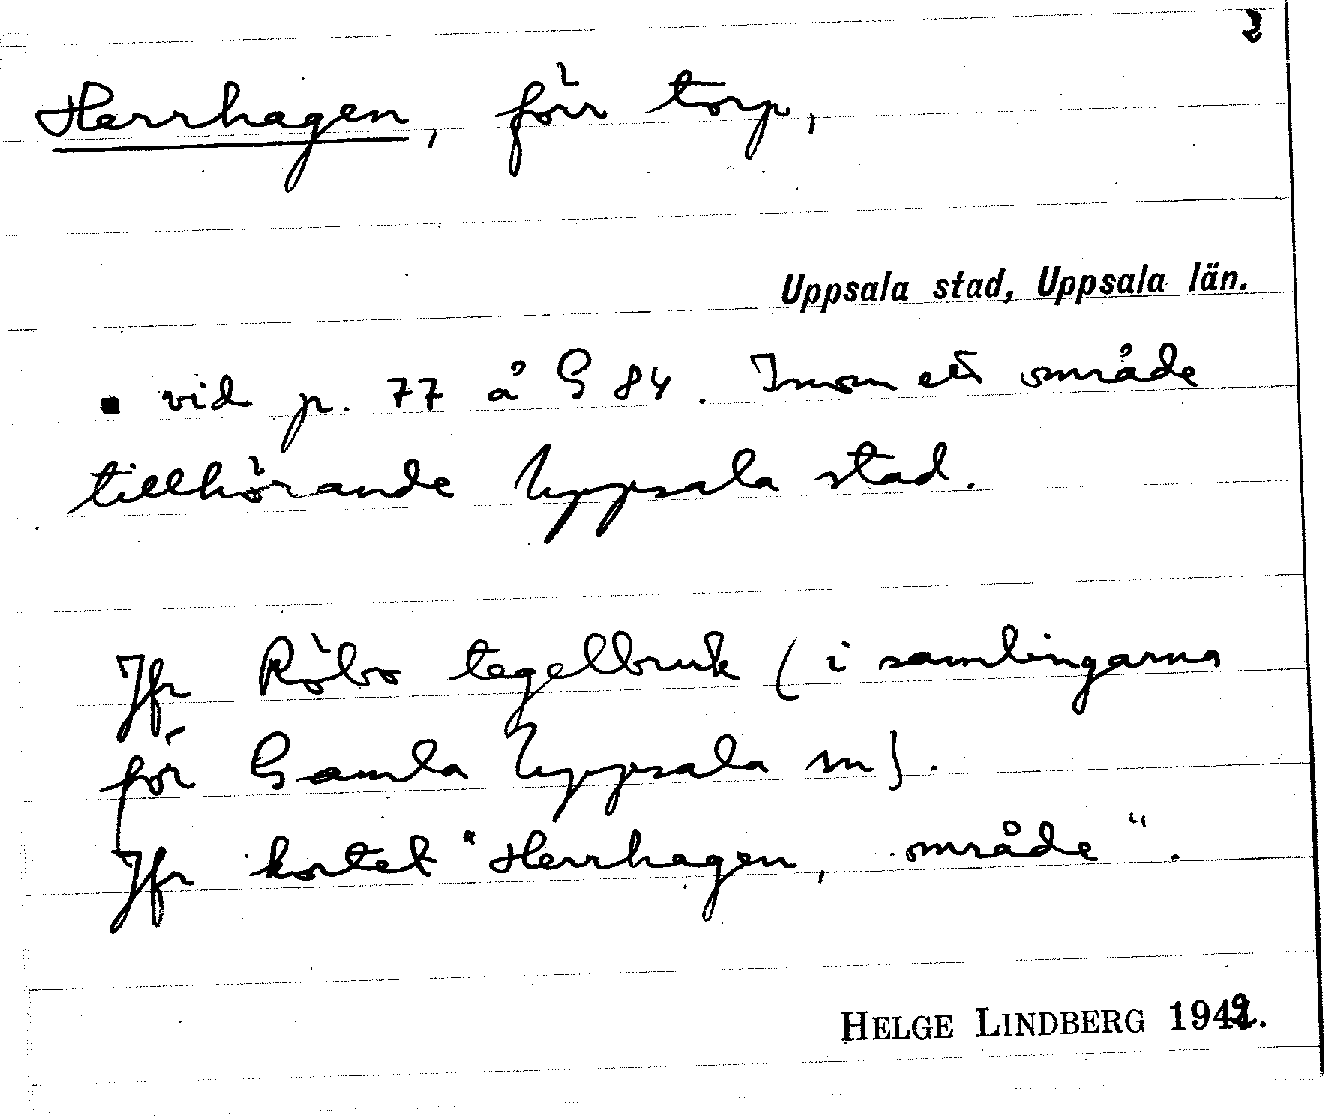 2
Herrhagen, förr torp,
Uppsala stad, Uppsala län.
vid p. 77 å G 84. Inom ett område
tillhörande Uppsala stad.
Jfr Röbo tegelbruk (i samlingarna
för Gamla Uppsala sn).
Jfr kortet "Herrhagen, område".
HELGE LINDBERG 1942.